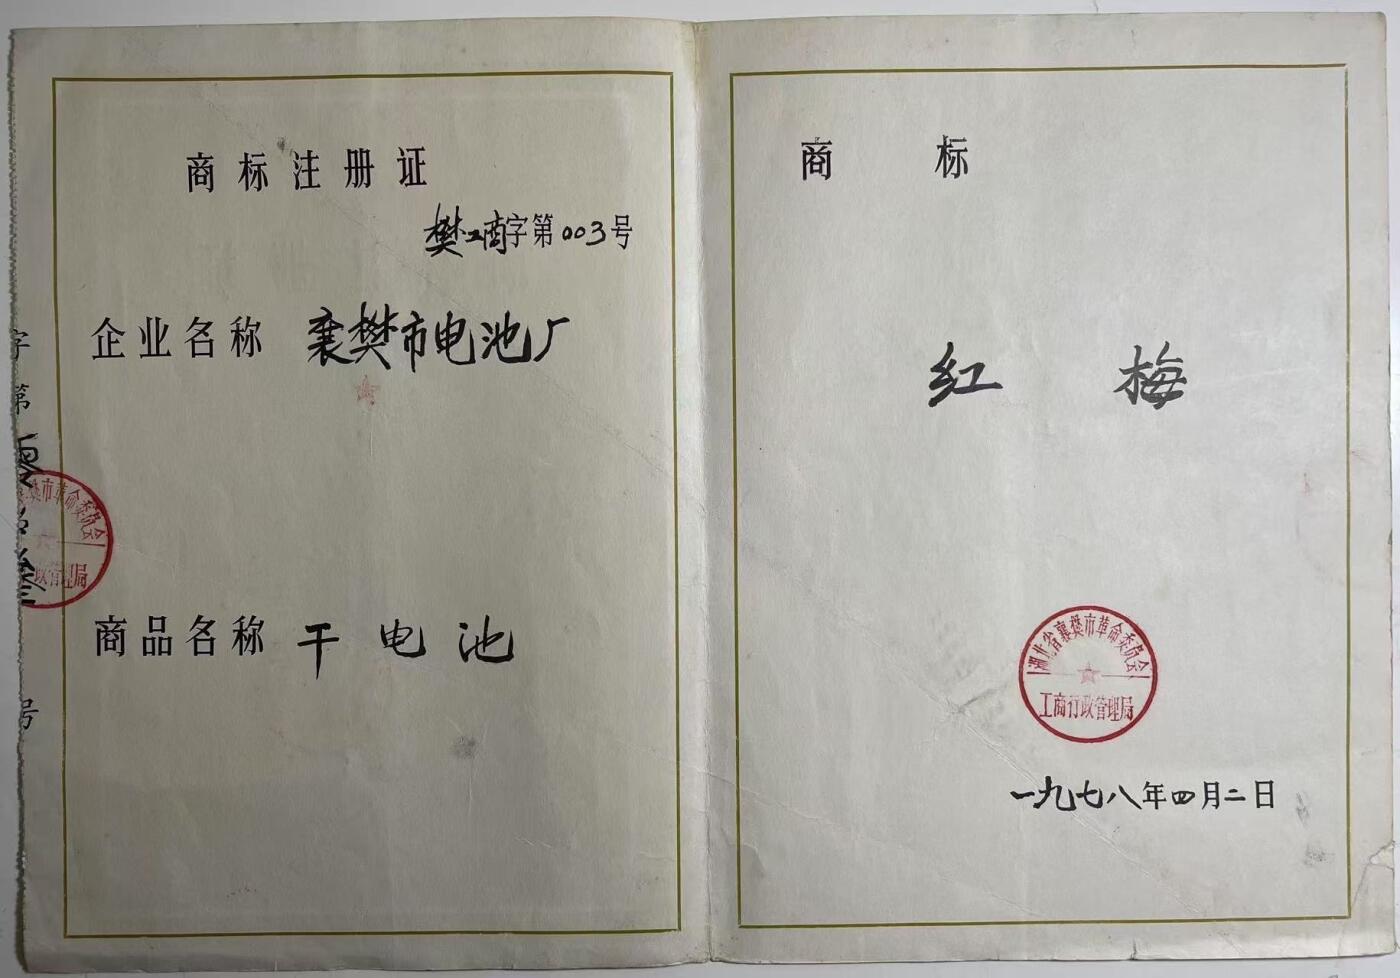 商标注册证
樊工商字第003号
企业名称 襄樊市电池厂
商品名称 干电池
字第零零叁号
樊市革命委员会
政管理局
商标
红梅
湖北省襄樊市革命委员会
工商行政管理局
一九七八年四月二日